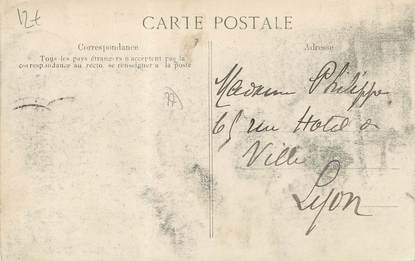 12+
CARTE POSTALE
Correspondance
Tous les pays étrangers n'acceptent pas la
correspondance au recto. se renseigner à la poste
Adresse
Madame Philippe
65 rue Hotel de
Ville
Lyon